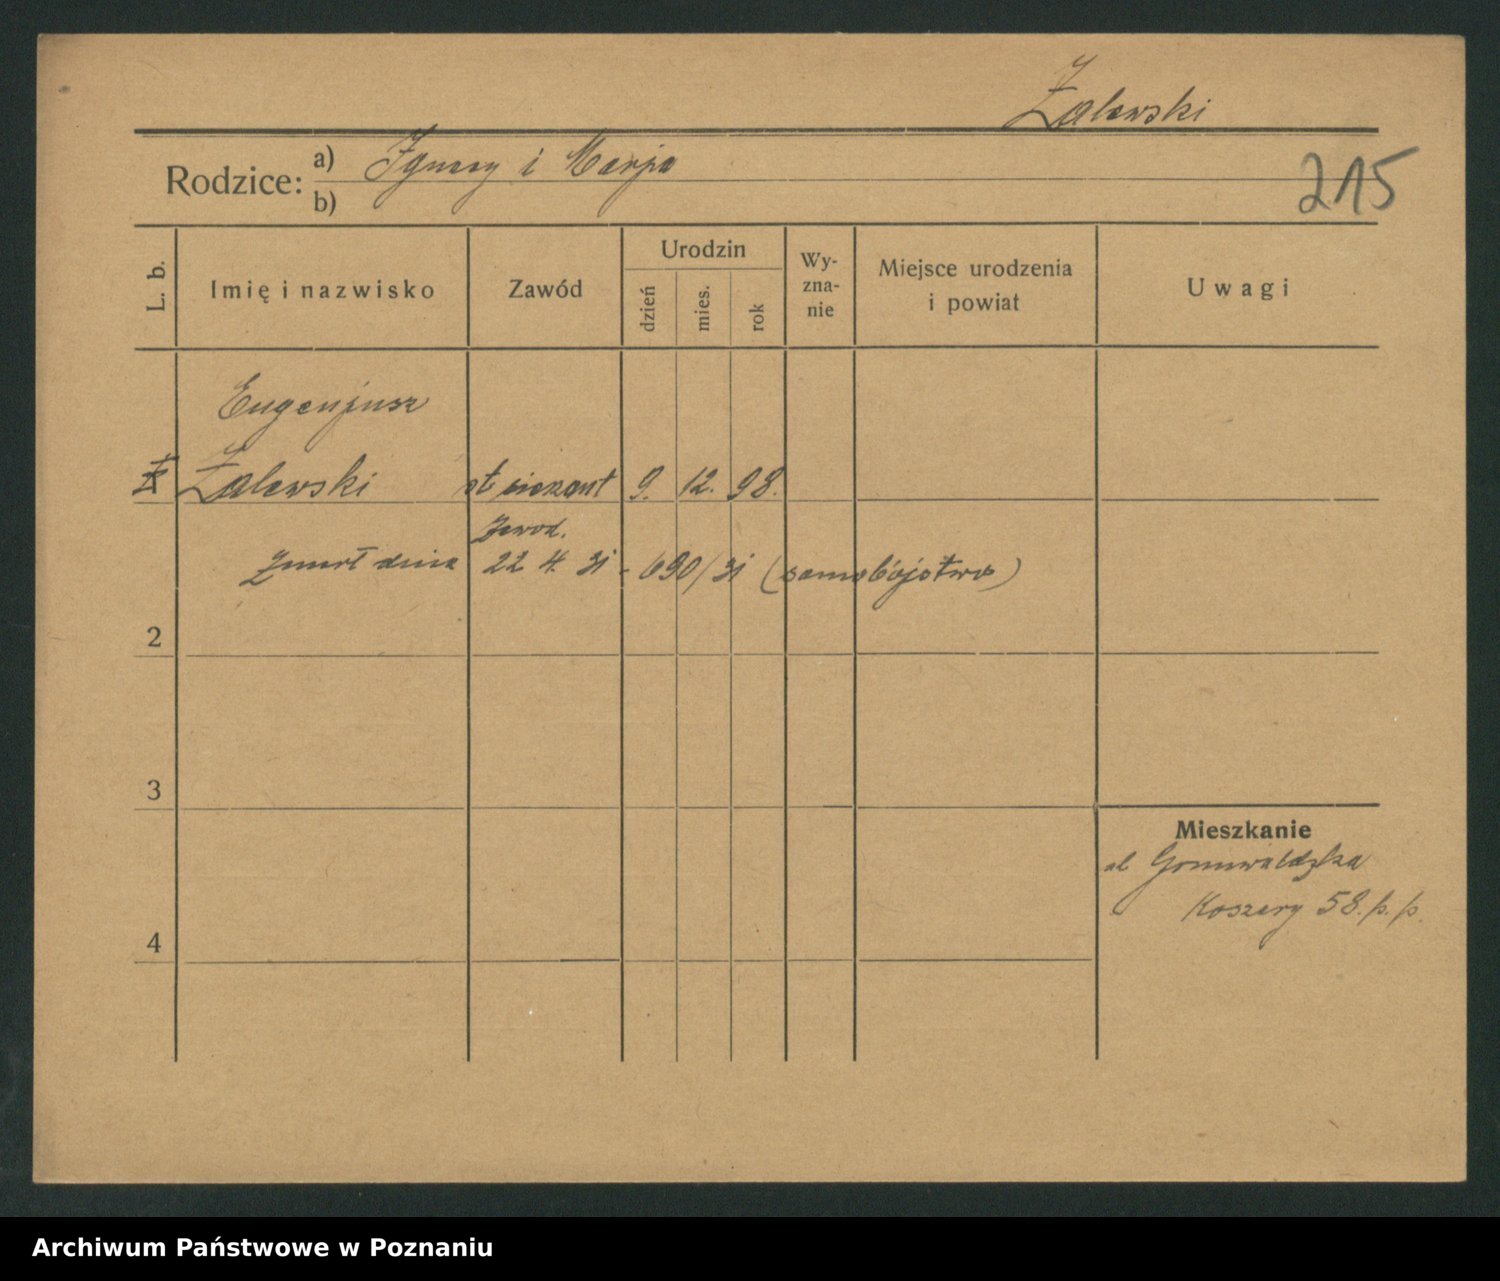 Zalewski
Rodzice: a) Ignacy i Marja
b)
215
L. b.
Imię i nazwisko
Zawód
Urodzin
dzień
mies.
rok
Wy-
zna-
nie
Miejsce urodzenia
i powiat
Uwagi
Eugenjusz
Zalewski st sierżant 9. 12. 98.
zawod.
Zmarł dnia 22 4. 31 - 690/31 (samobójstwo)
2
3
Mieszkanie
ul Grunwaldzka
Koszary 58. p. p.
4
Archiwum Państwowe w Poznaniu